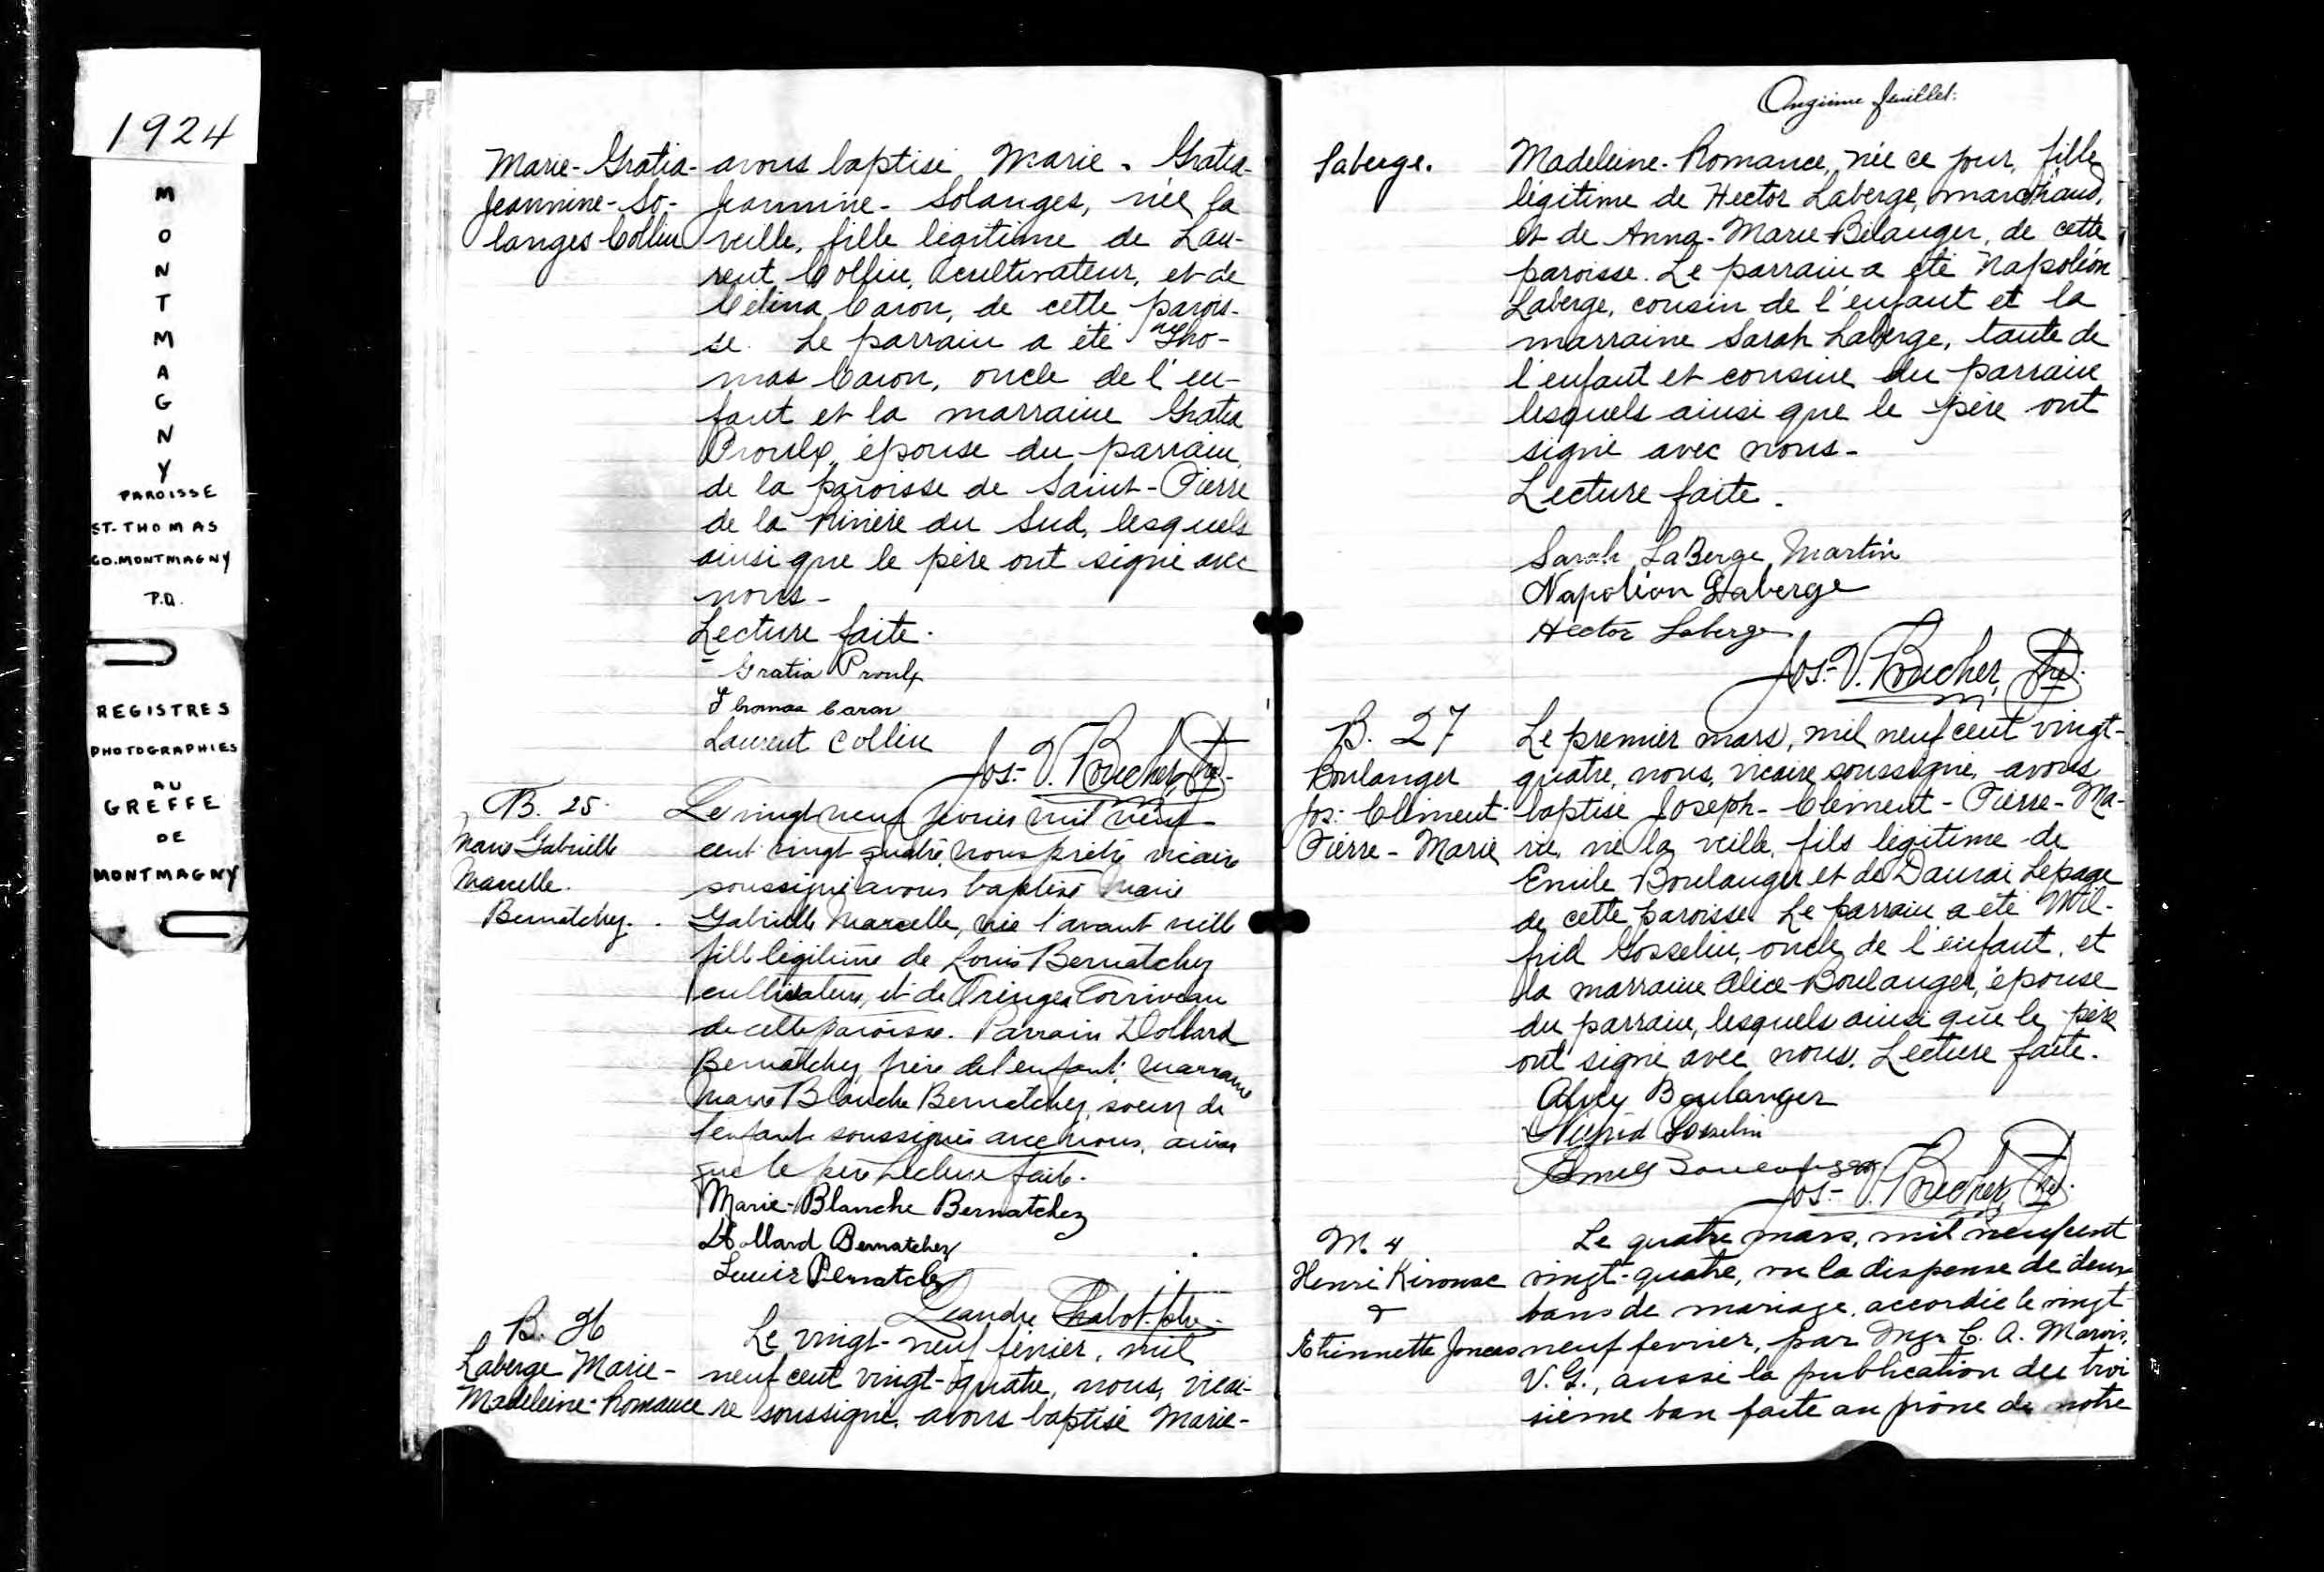 1924
MONTMAGNY
PAROISSE
ST-THOMAS
CO. MONTMAGNY
P.Q.
REGISTRES
PHOTOGRAPHIES
AU
GREFFE
DE
MONTMAGNY
Marie-Gratia-
Jeannine-So-
langes Collin
avons baptisé Marie-Gratia-
Jeannine-Solanges, née la
veille, fille légitime de Lau-
rent Collin, cultivateur, et de
Célina Caron, de cette parois-
se. Le parrain a été Tho-
mas Caron, oncle de l'en-
fant et la marraine Gratia
Proulx, épouse du parrain,
de la paroisse de Saint-Pierre
de la Rivière du Sud, lesquels
ainsi que le père ont signé avec
nous-
Lecture faite.
Gratia Proulx
Thomas Caron
Laurent Collin
Jos.-V. Boucher, Ptre.
B. 25.
Marie Gabrielle
Marcelle.
Bernatchez.
Le vingt neuf février mil neuf
cent vingt quatre, nous prêtre vicaire
soussigné avons baptisé Marie
Gabrielle Marcelle, née l'avant veille
fille légitime de Louis Bernatchez
cultivateur, et de Corriveau
de cette paroisse. Parrain Dollard
Bernatchez, frère de l'enfant; marraine
Marie Blanche Bernatchez, soeur de
l'enfant soussignés avec nous, ainsi
que le père Lecture faite.
Marie-Blanche Bernatchez
Dollard Bernatchez
Louis Bernatchez
Léandre Chabot ptre.
B. 26
Laberge Marie-
Madeleine-Romance
Le vingt-neuf février, mil
neuf cent vingt-quatre, nous, vicai-
re soussigné, avons baptisé Marie-
Onzième feuillet.
Laberge.
Madeleine-Romance, née ce jour, fille
légitime de Hector Laberge, marchand,
et de Anna-Marie Bélanger, de cette
paroisse. Le parrain a été Napoléon
Laberge, cousin de l'enfant et la
marraine Sarah Laberge, tante de
l'enfant et cousine du parrain
lesquels ainsi que le père ont
signé avec nous-
Lecture faite.
Sarah LaBerge Martin
Napoléon Laberge
Hector Laberge
Jos.-V. Boucher, Ptre.
B. 27
Boulanger
Jos.-Clément-
Pierre-Marie
Le premier mars, mil neuf cent vingt-
quatre, nous, vicaire soussigné, avons
baptisé Joseph-Clément-Pierre-Ma-
rie, né la veille, fils légitime de
Emile Boulanger et de Lepage
de cette paroisse. Le parrain a été Wil-
frid Gosselin, oncle de l'enfant, et
la marraine Alice Boulanger, épouse
du parrain, lesquels ainsi que le père
ont signé avec nous. Lecture faite.
Boulanger
Gosselin
Emile Boulanger
Jos.-V. Boucher, Ptre.
M. 4
Henri Kirouac
&
Etiennette Joncas
Le quatre mars, mil neuf cent
vingt-quatre, vu la dispense de deux
bans de mariage, accordée le vingt-
neuf février, par Mgr C. A. Marois,
V. G., aussi la publication du troi
sième ban faite au prône de notre